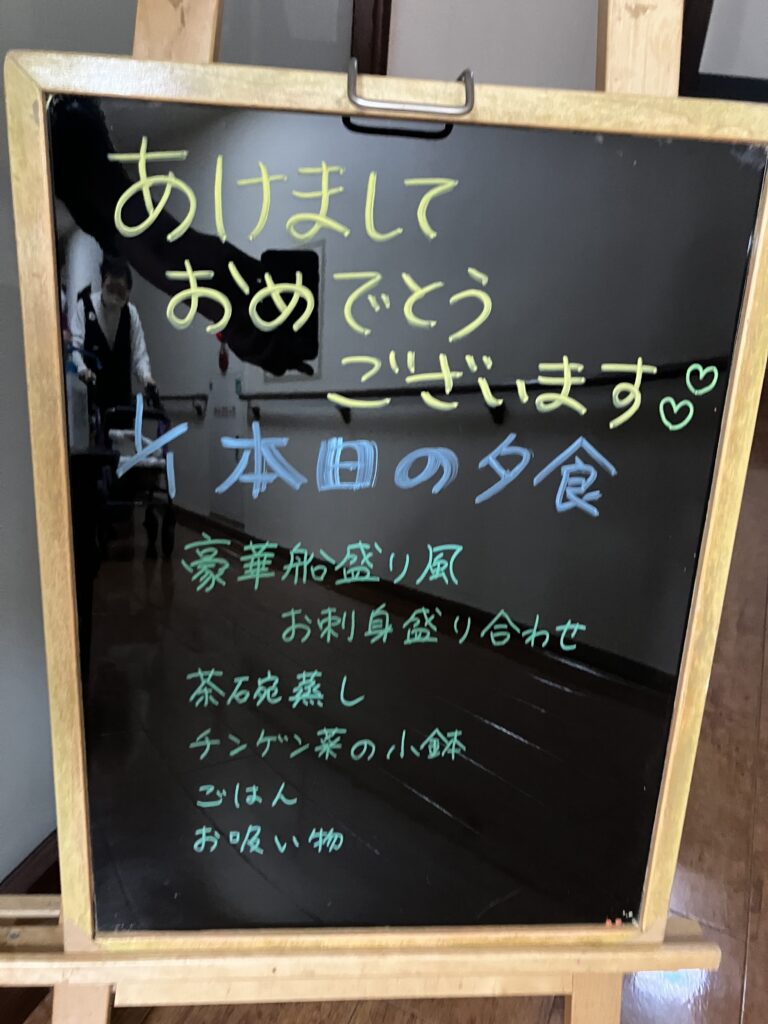 あけまして
おめでとう
ございます♡♡
1/1 本日の夕食
豪華船盛り風
お刺身盛り合わせ
茶碗蒸し
チンゲン菜の小鉢
ごはん
お吸い物